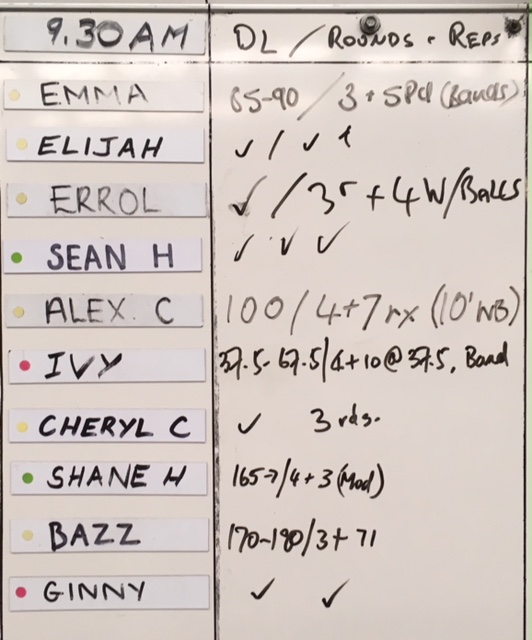 9.30AM DL / ROUNDS + REPS
EMMA 85-90 / 3 + 5 Pcl (Bands)
ELIJAH ✓ / ✓
ERROL ✓ / 3r + 4 W/BALLS
SEAN H ✓ ✓ ✓
ALEX. C 100 / 4+7 rx (10' WB)
IVY 37.5 - 67.5 / 4+10 @ 37.5, Band
CHERYL C ✓ 3 rds.
SHANE H 165 → / 4 + 3 (Mod)
BAZZ 170-180 / 3 + 71
GINNY ✓ ✓